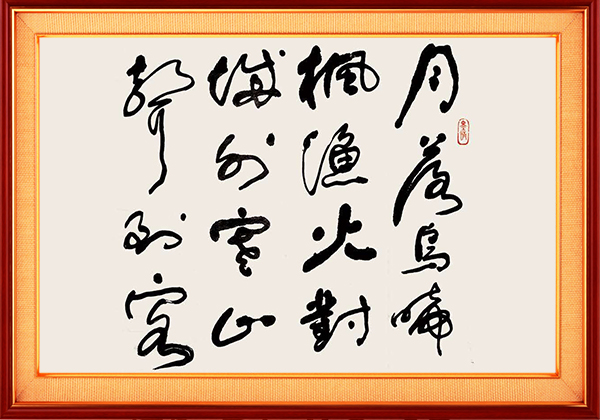 月落烏啼
楓漁火對
城外寒山
聲到客